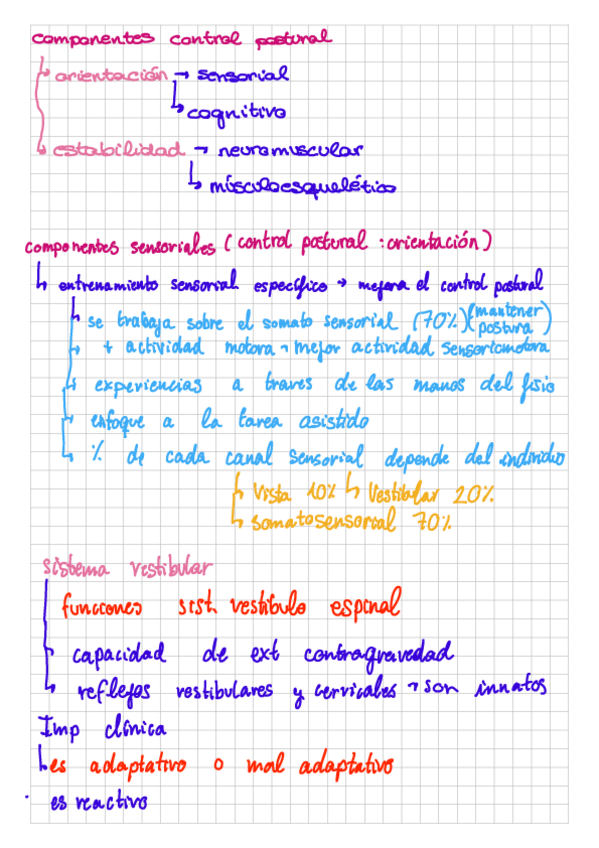 componentes control postural
↳ orientación → sensorial
↳ cognitivo
↳ estabilidad → neuromuscular
↳ músculoesquelético
componentes sensoriales (control postural : orientación)
↳ entrenamiento sensorial específico → mejora el control postural
↳ se trabaja sobre el somato sensorial (70%) (mantener postura)
↳ + actividad motora → mejor actividad sensoriomotora
↳ experiencias a traves de las manos del fisio
↳ enfoque a la tarea asistido
↳ % de cada canal sensorial depende del individio
↳ Vista 10% ↳ Vestibular 20%
↳ somatosensorial 70%
sistema vestibular
funciones sist. vestibulo espinal
↳ capacidad de ext contragravedad
↳ reflejos vestibulares y cervicales → son innatos
Imp clínica
↳ es adaptativo o mal adaptativo
· es reactivo